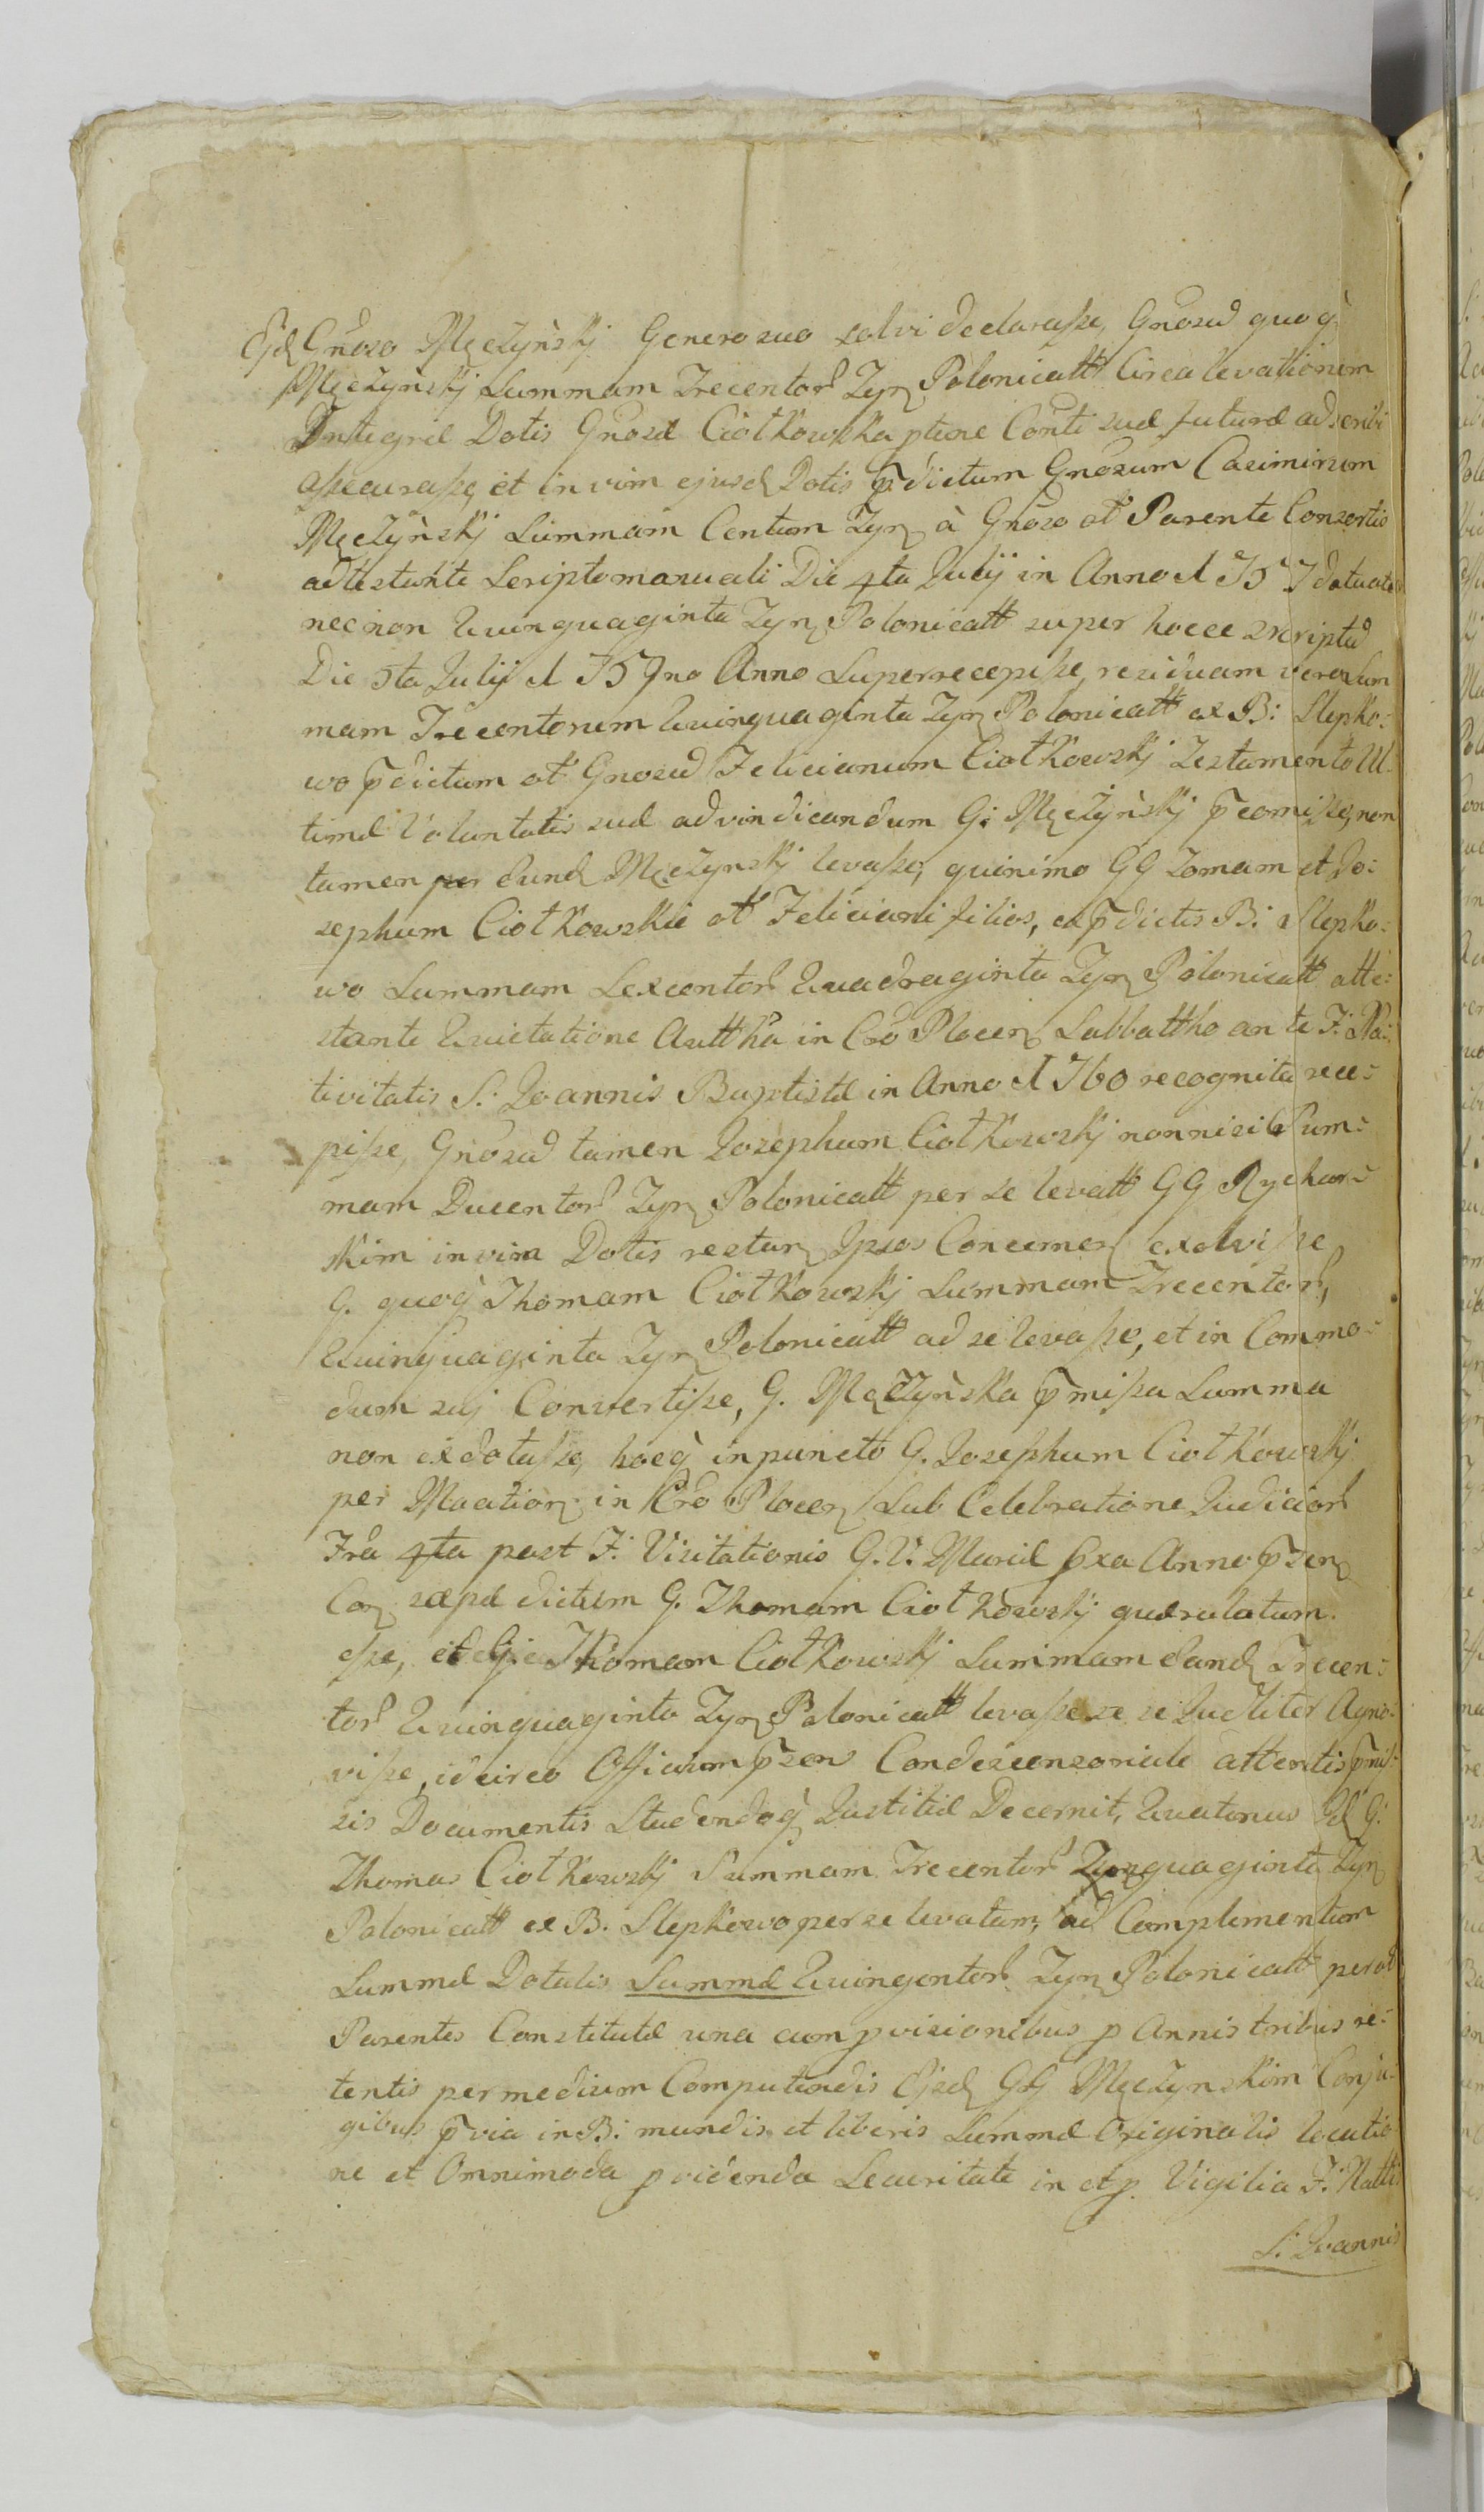 Ejd Gnoso Mężyński Genero suo solvi declarasse, Gnosū quoq̀
Mężyński Summam Trecentor Tyn Polonicatt Circa levationem
Integræ Dotis Gnosæ Ciołkowska ptunc Conti suæ futuræ adscribi
assecurasse, et in vim ejusd Dotis pdictum Gnosum Casimirum
Mężyński Summam Centum Tyn à Gnoso ol Parente Consortis
adtestante Scripto manuali Die 4ta Julij in Anno 1757 datuato
necnon Quinquaginta Tyn Polonicatt super hocce scriptū
Die 5ta Julij 1759no Anno Superrecepisse, residuam vero Sum
mam Trecentorum Quinquaginta Tyn Polonicatt ex B: Slepko:
wo pdictum ol Gnosū Felicianum Ciołkowski Testamento Ul-
timæ Voluntatis suæ ad vindicandum G: Mężyński promisse, non
tamen per eund Mężynski levasse, quinimo GG Tomam et Jo:
sephum Ciołkowskie ol Feliciani filios, ex pdictis B: Slepko:
wo Summam Sexcentor Quadraginta Tyn Polonicatt atte:
stante Quietatione Autthā in Cro Plocen Sabbattho ante F: Na:
tivitatis S: Joannis Baptistæ in Anno 1760 recognita rece:
pisse, Gnosū tamen Josephum Ciołkowski nonnisi Sum:
mam Ducentor Tyn Polonicatt per se levatt GG Rychar:
skim in vim Dotis restan Ipsos Concernen exolvisse
G. quoq̀ Thomam Ciołkowski Summam Trecentor,
Quinquaginta Tyn Polonicatt ad se levasse, et in Commo:
dum sui Convertisse, G. Mężyńska pmissa Summa
non exdotasse, hocq̀ in puncto G. Josephum Ciołkowski
per Maation in Cro Plocen Sub Celebratione Judicior
Fra 4ta post F: Visitationis G. V. Mariæ pxa Anno psen
Con sæpe dictum G. Thomam Ciołkowski quærulatum
esse, et G. Thomam Ciołkowski Summam eand Trecen:
tor Quinquaginta Tyn Polonicatt levasse se se Judliter Agno:
visse, idcirco Officium psens Condescensoriale attentis pmis:
sis Documentis Studendoq̀ Justitiæ Decernit, Quatenus Id G.
Thomas Ciołkowski Summam Trecentor Quinquaginta Tyn
Polonicatt ex B. Slepkowo per se levatam, ad Complementum
Summæ Dotalis Summæ Quingentor Tyn Polonicatt per ol
Parentes Constitutæ una cum pvisionibus p Annis tribus re-
tentis per medium Computandis Ejsd GG Mężynskim Conju-
gibus pvia in B: mundis et liberis Summæ Originalis locatio
ne et Omnimoda pvidenda Securitate in et p. Vigilia F: Natti
S: Joannis